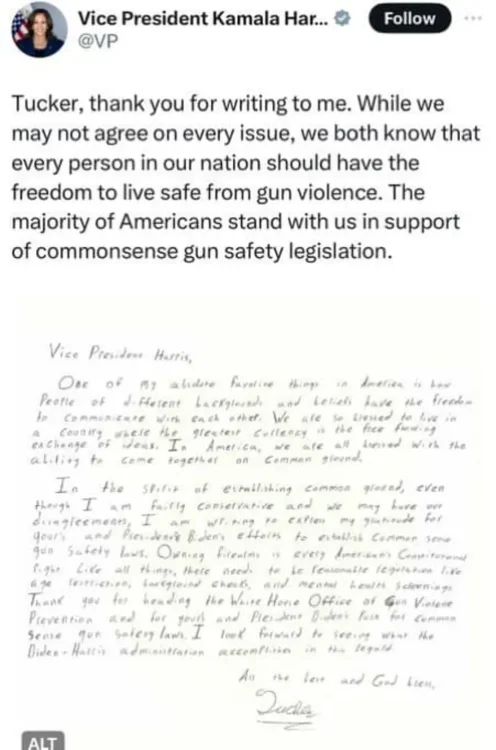 Vice President Kamala Har...
Follow
@VP
Tucker, thank you for writing to me. While we
may not agree on every issue, we both know that
every person in our nation should have the
freedom to live safe from gun violence. The
majority of Americans stand with us in support
of commonsense gun safety legislation.
Vice President Harris,
One of my absolute favorite things in America is how
People of different backgrounds and beliefs have the freedom
to communicate with each other. We are so blessed to live in
a country where the greatest currency is the free flowing
exchange of ideas. In America, we are all blessed with the
ability to come together on common ground.
In the spirit of establishing common ground, even
though I am fairly conservative and we may have our
disagreements, I am writing to express my gratitude for
yours and President Biden's efforts to establish common sense
gun safety laws. Owning firearms is every American's Constitutional
right. Like all things, there needs to be reasonable legislation like
age restriction, background checks, and mental health screenings
Thank you for heading the White House Office of Gun Violence
Prevention and for yours and President Biden's push for common
sense gun safety laws. I look forward to seeing what the
Biden-Harris administration accomplishes in this regard.
All the best and God bless,
Tucker
ALT